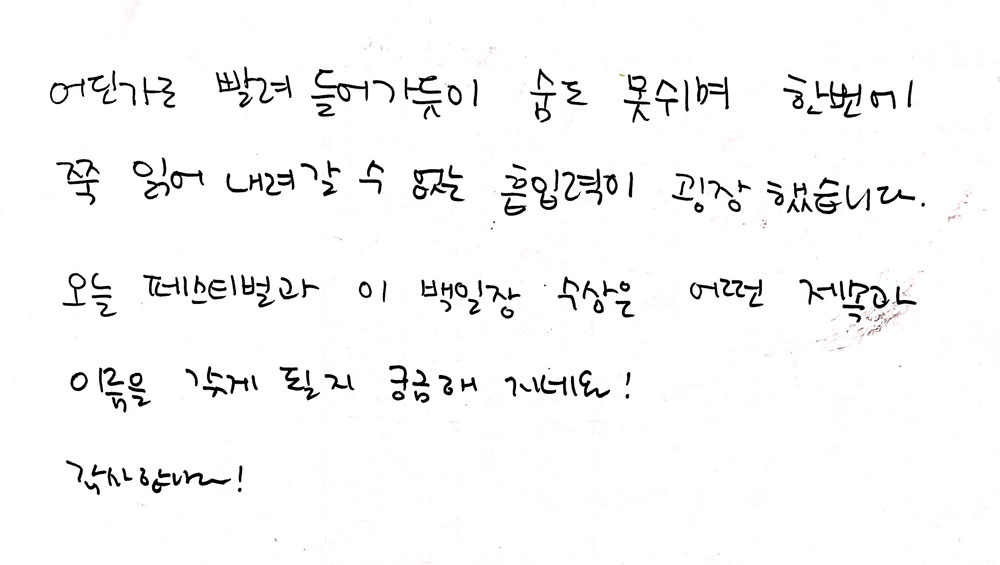 어딘가로 빨려 들어가듯이 숨도 못쉬며 한번에
쭉 읽어 내려갈 수 있는 흡입력이 굉장했습니다.
오늘 페스티벌과 이 백일장 수상은 어떤 제목과
이름을 갖게 될지 궁금해 지네요!
감사합니다!